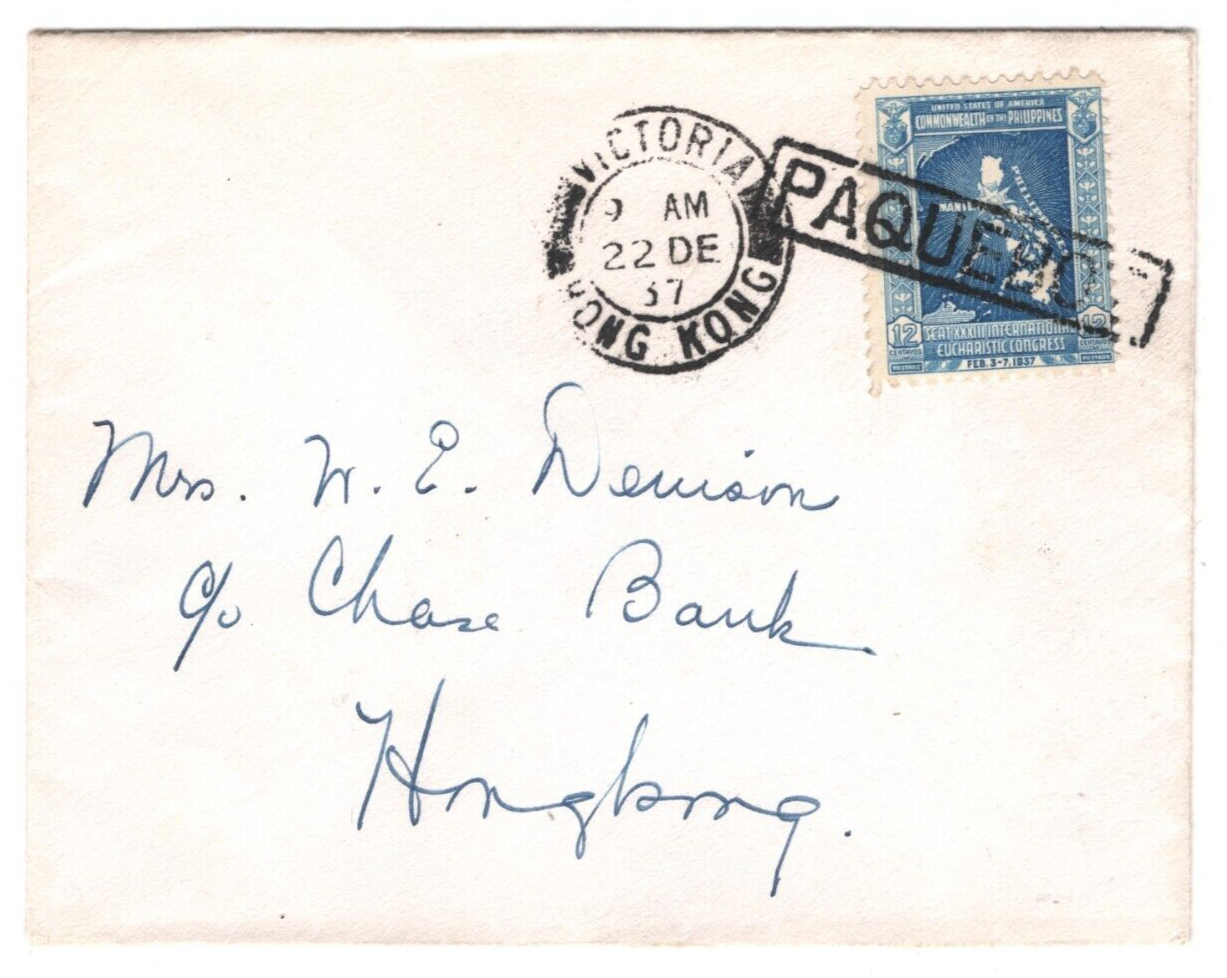 VICTORIA
9 AM
22 DE
37
HONG KONG
PAQUEBOT
UNITED STATES OF AMERICA
COMMONWEALTH OF THE PHILIPPINES
12 12
CENTAVOS
SEAT XXXIII INTERNATIONAL
EUCHARISTIC CONGRESS
FEB. 3-7, 1937
Mrs. W. E. Denison
c/o Chase Bank
Hongkong.